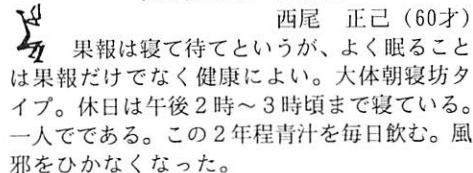 西尾　正己（60才）
果報は寝て待てというが、よく眠ること
は果報だけでなく健康によい。大体朝寝坊タ
イプ。休日は午後２時～３時頃まで寝ている。
一人でである。この２年程青汁を毎日飲む。風
邪をひかなくなった。